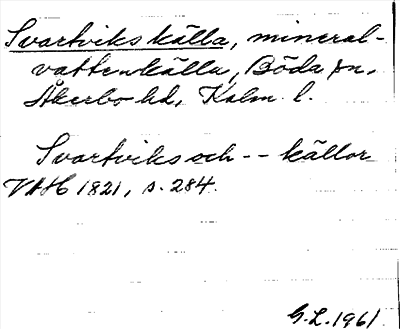 Svartviks källa, mineral-
vattenkälla, Böda sn,
Åkerbo hd, Kalm. l.
Svartviks och -- källor
VAH 1821, s. 284.
G.L. 1961